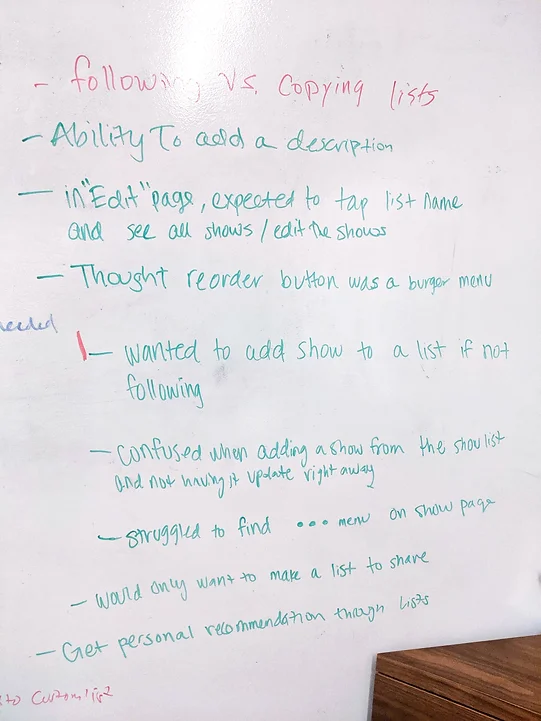 - following vs. Copying lists
- Ability To add a description
- in "Edit" page, expected to tap list name
and see all shows / edit the shows
- Thought reorder button was a burger menu
needed
- wanted to add show to a list if not
following
- Confused when adding a show from the show list
and not having it update right away
- struggled to find ••• menu on show page
- would only want to make a list to share
- Get personal recommendation through lists
to Custom list